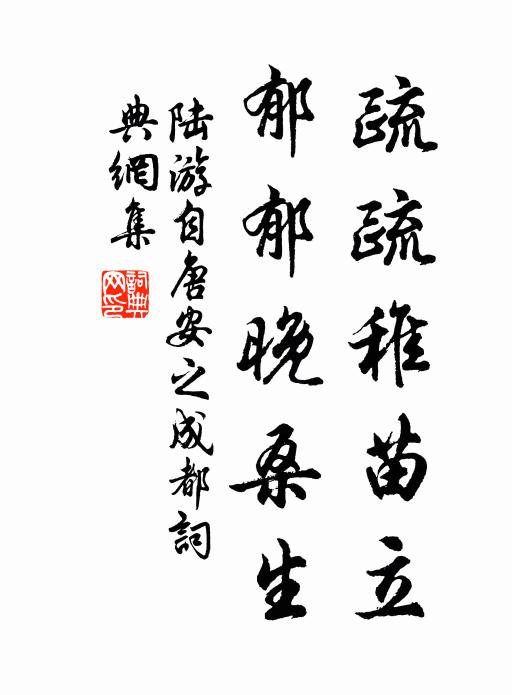 疏疏稚苗立
郁郁晚桑生
陆游自唐安之成都詞
典網集
詞典网印